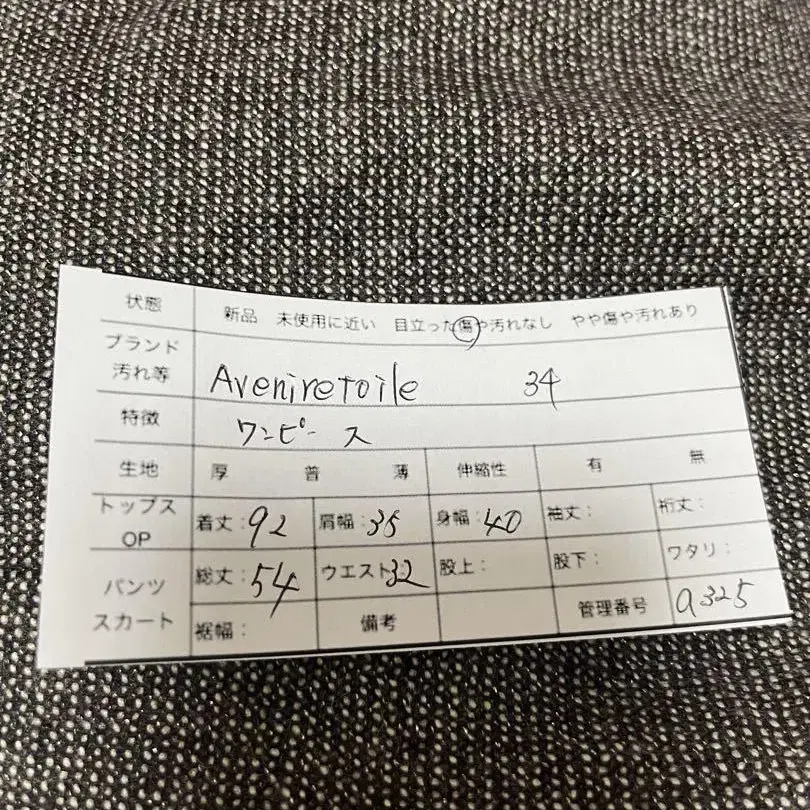 状態 新品 未使用に近い 目立った傷や汚れなし やや傷や汚れあり
ブランド
汚れ等 Aveniretoile 34
特徴 ワンピース
生地 厚 普 薄 伸縮性 有 無
トップス
OP 着丈:92 肩幅:35 身幅:40 袖丈: 裄丈:
パンツ
スカート 総丈:54 ウエスト:32 股上: 股下: ワタリ:
裾幅: 備考 管理番号 a325